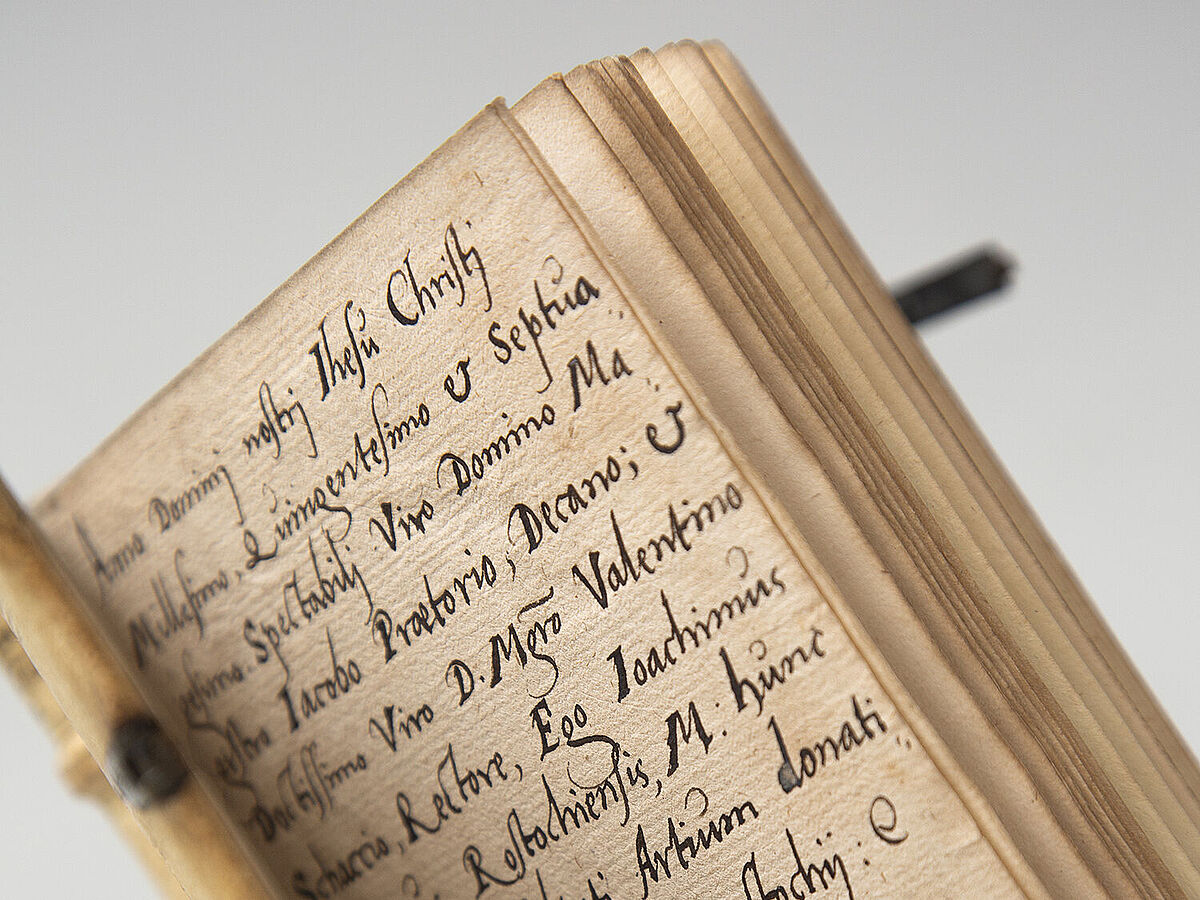 Anno Dominj nostrj Ihesu Christj
Millesimo, Quingentesimo & Septua
gesimo. Spectabilj Viro Domino Ma
gistro Iacobo Prætorio, Decano; &
Doctissimo Viro D. Mgrō Valentino
Schaccio, Rectore, Ego Ioachimus
Rostochiensis, M: hunc
Artium donati